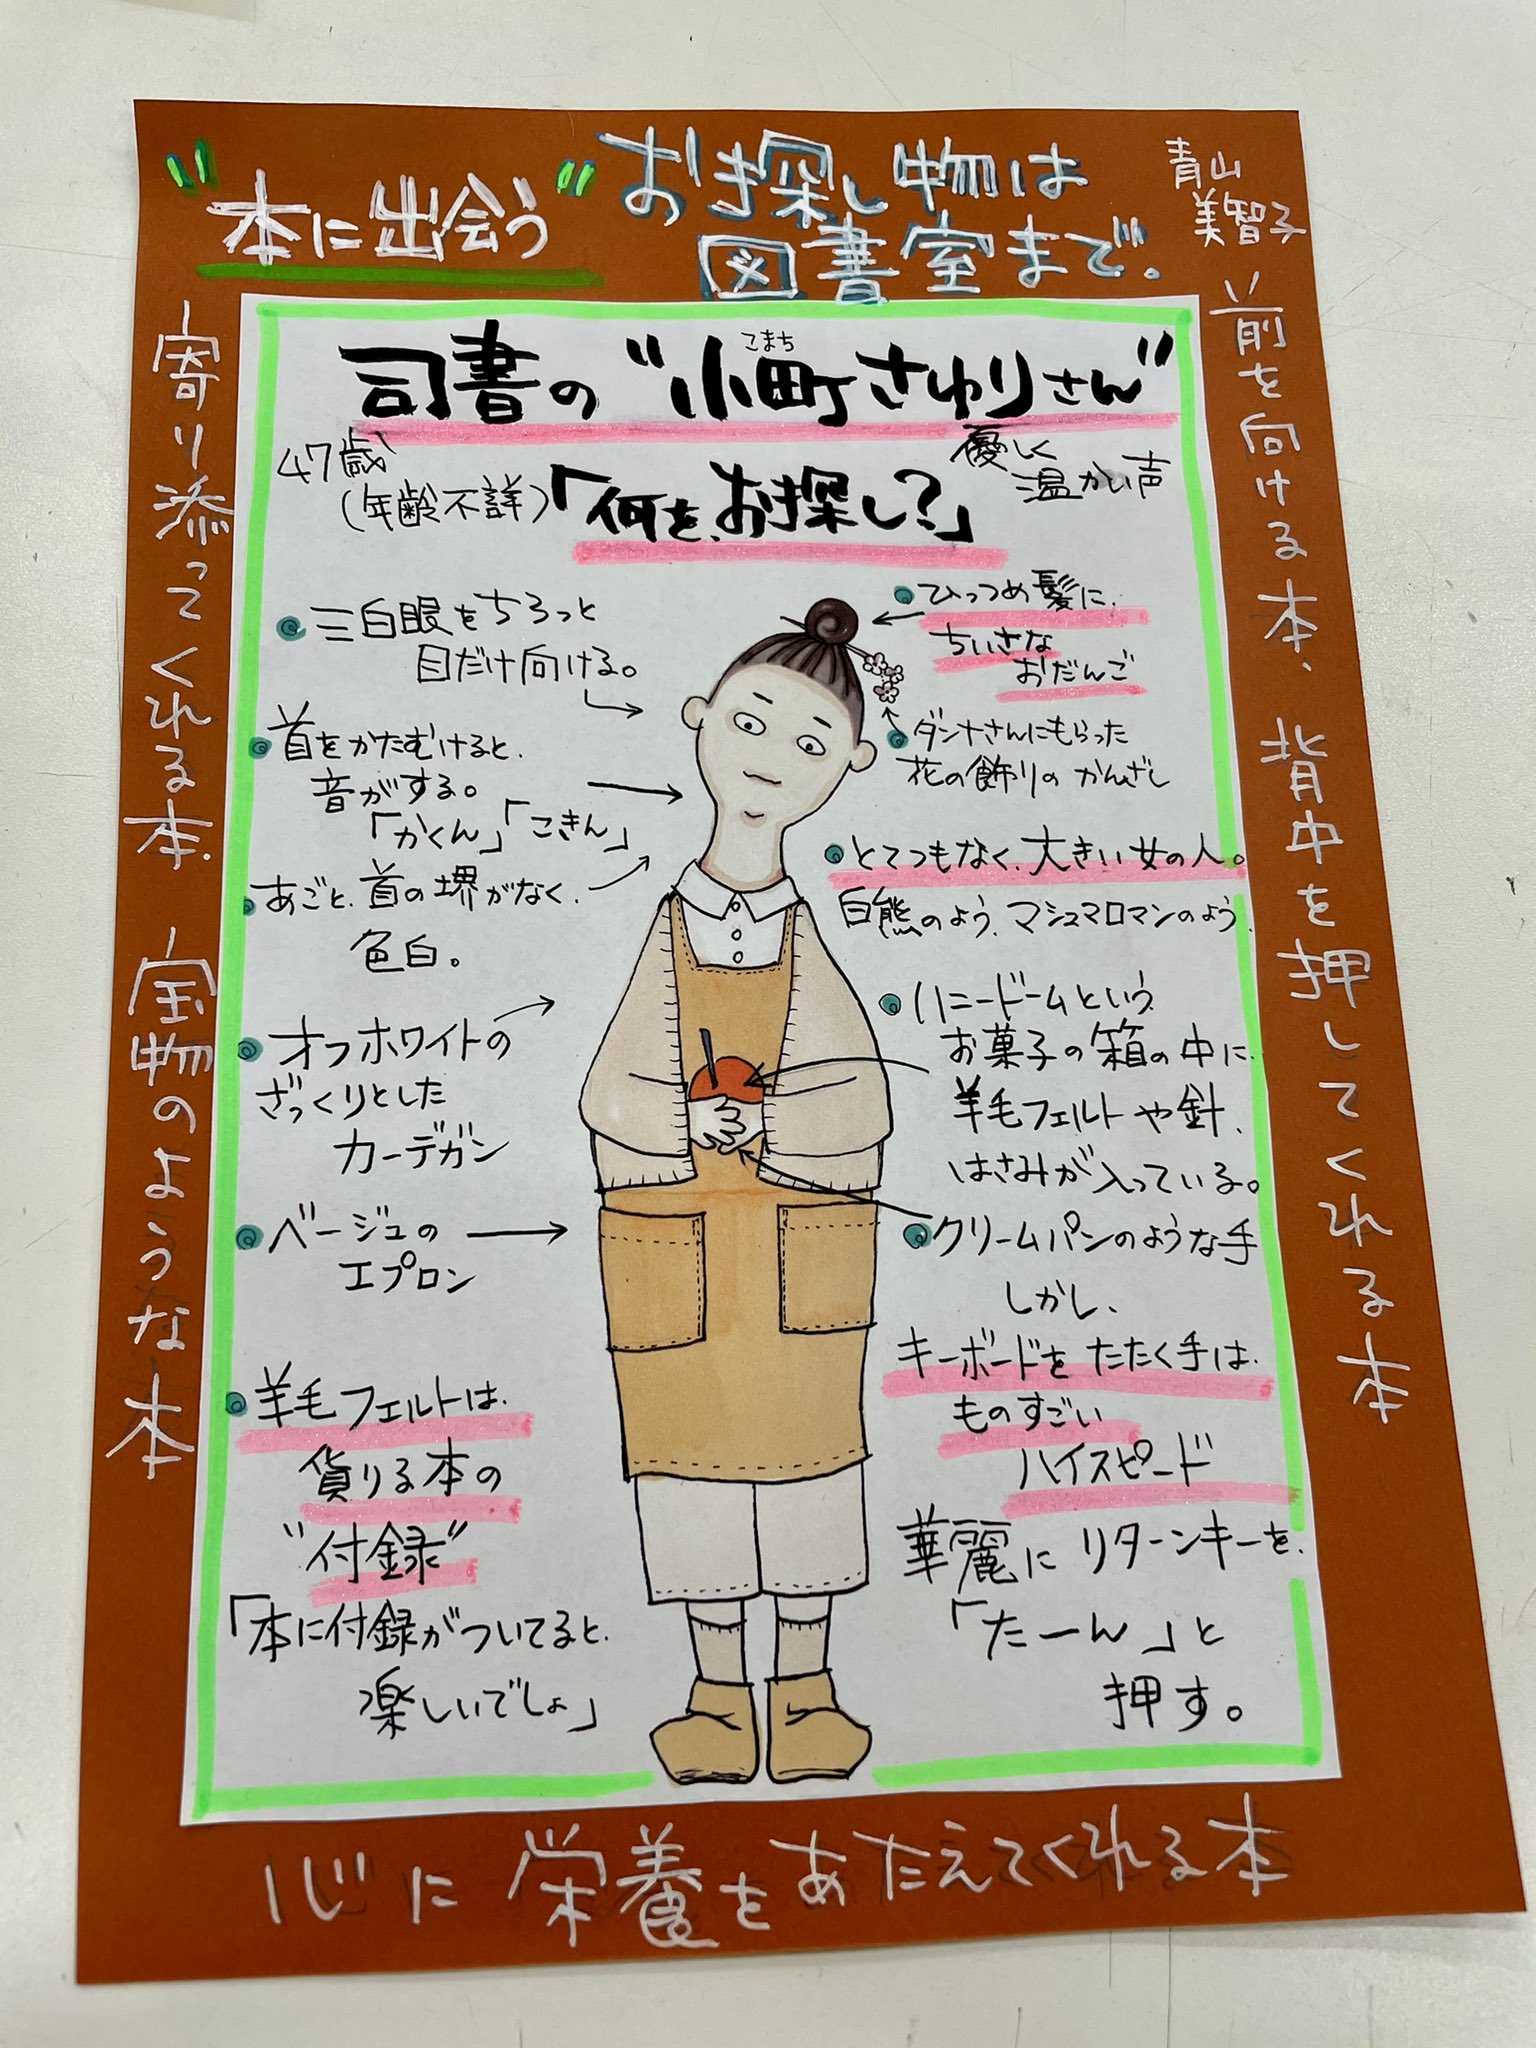 "本に出会う"
お探し物は
図書室まで。
青山
美智子
寄り添ってくれる本、宝物のような本
前を向ける本、背中を押してくれる本
司書の"小町さゆりさん"
こまち
47歳
(年齢不詳)
「何を、お探し?」
優しく
温かい声
三白眼をちろっと
目だけ向ける。
首をかたむけると、
音がする。
「かくん」「こきん」
あごと、首の堺がなく、
色白。
オフホワイトの
ざっくりとした
カーデガン
ベージュの
エプロン
羊毛フェルトは、
貸りる本の
"付録"
「本に付録がついてると、
楽しいでしょ」
ひっつめ髪に、
ちいさな
おだんご
ダンナさんにもらった
花の飾りの かんざし
とてつもなく、大きい女の人。
白熊のよう、マシュマロマンのよう、
ハニードームという、
お菓子の箱の中に、
羊毛フェルトや針、
はさみが入っている。
クリームパンのような手
しかし、
キーボードを たたく手は、
ものすごい
ハイスピード
華麗に リターンキーを、
「たーん」と
押す。
心に栄養をあたえてくれる本